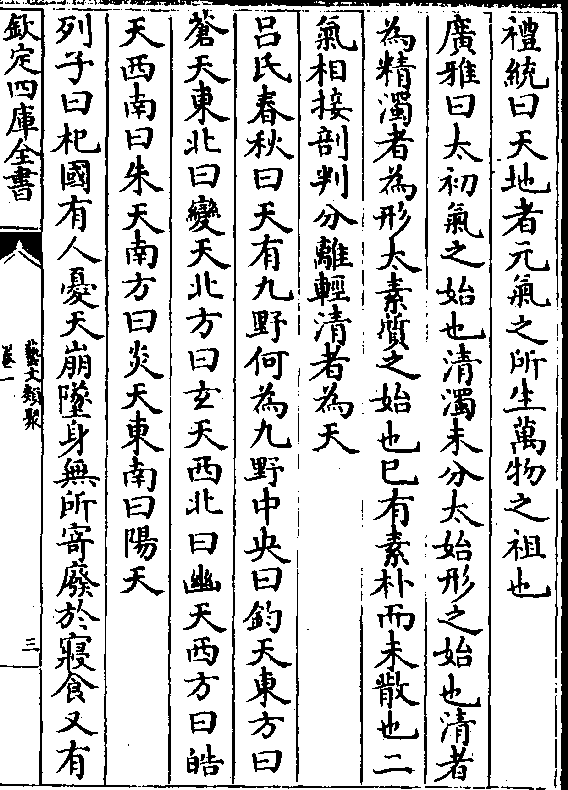 禮統曰天地者元氣之所生萬物之祖也
廣雅曰太初氣之始也清濁未分太始形之始也清者
為精濁者為形太素質之始也已有素朴而未散也二
氣相接剖判分離輕清者為天
呂氏春秋曰天有九野何為九野中央曰鈞天東方曰
蒼天東北曰變天北方曰玄天西北曰幽天西方曰皓
天西南曰朱天南方曰炎天東南曰陽天
列子曰杞國有人憂天崩墜身無所寄廢於寢食又有
欽定四庫全書
藝文類聚
卷一
三